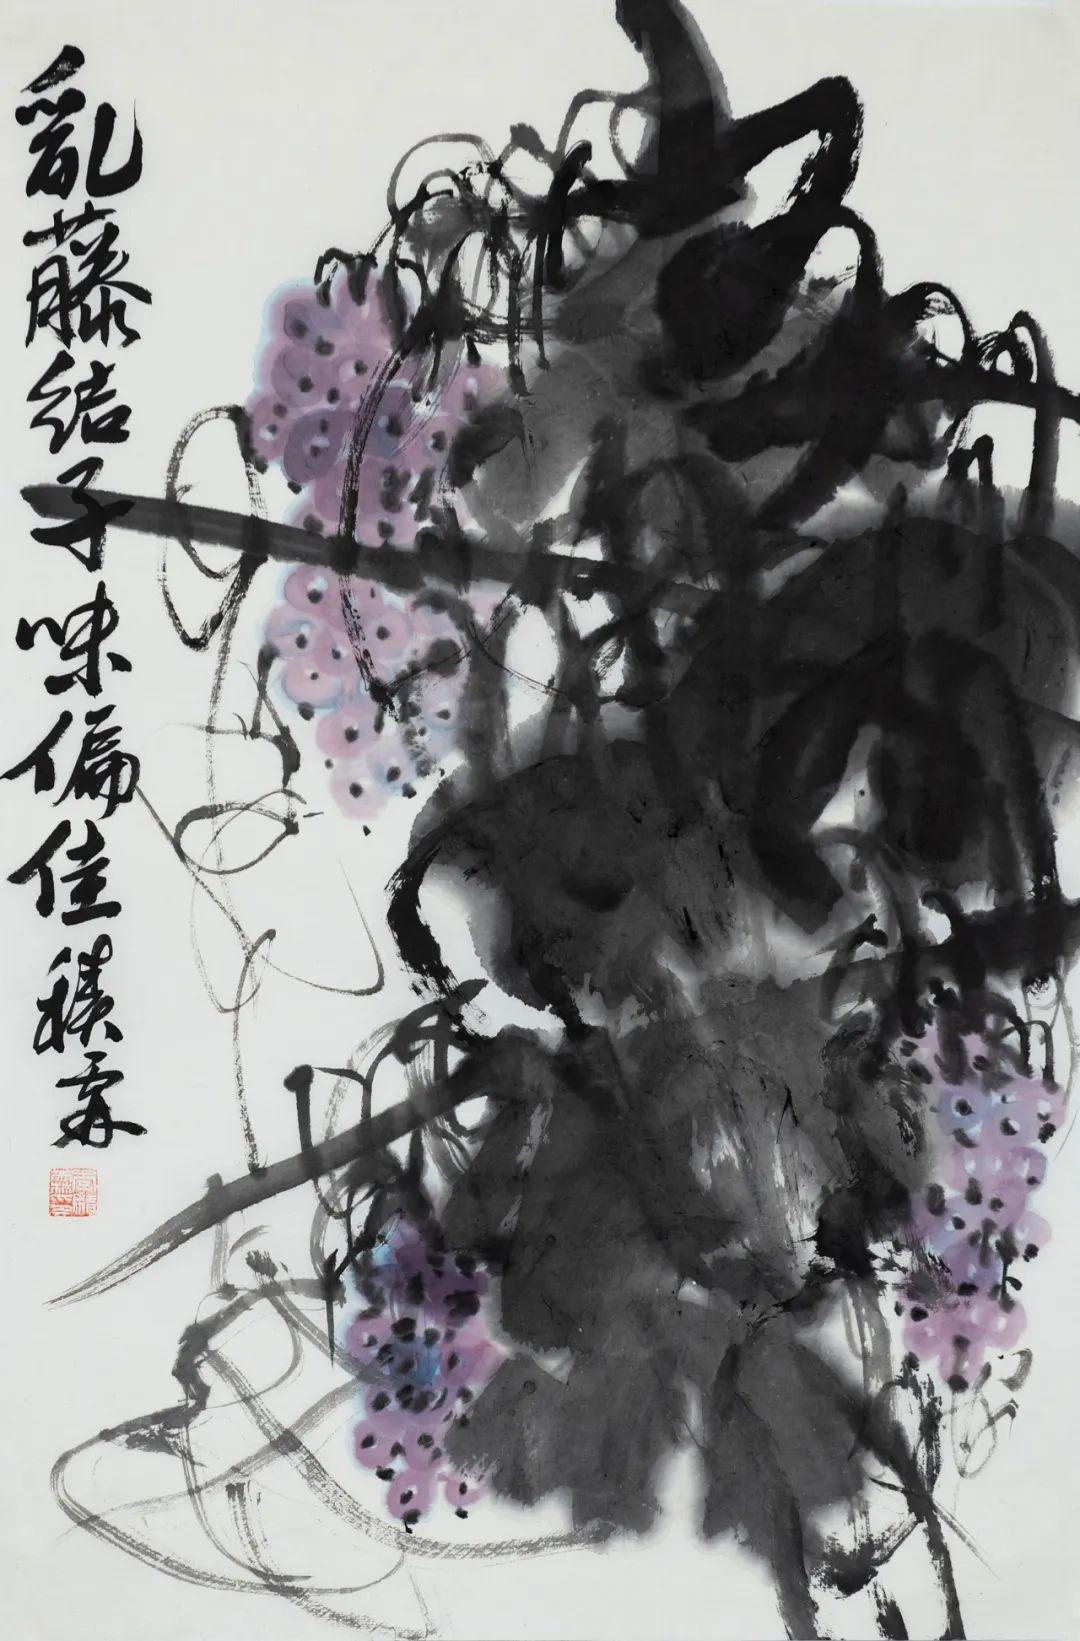 亂藤結子味偏佳積霖